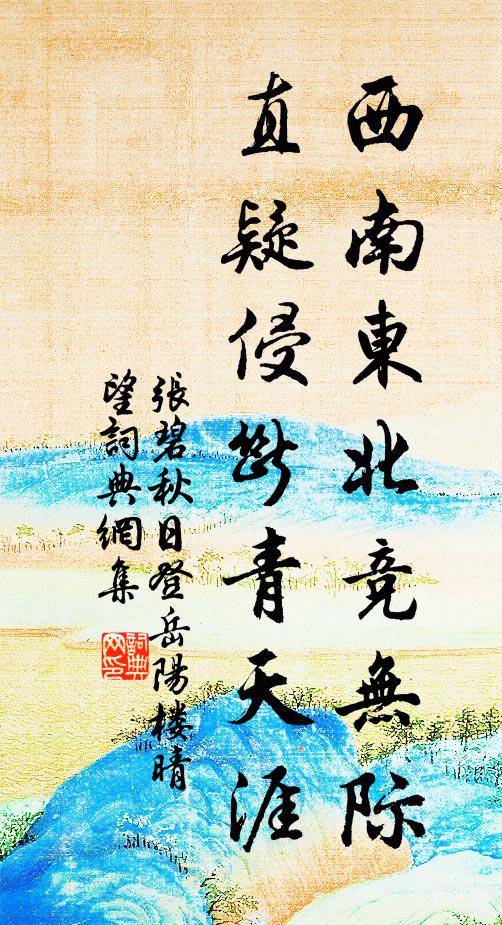 西南東北竞無际
直疑侵斷青天涯
張碧秋日登岳陽楼晴
望詞典網集
詞典
网印